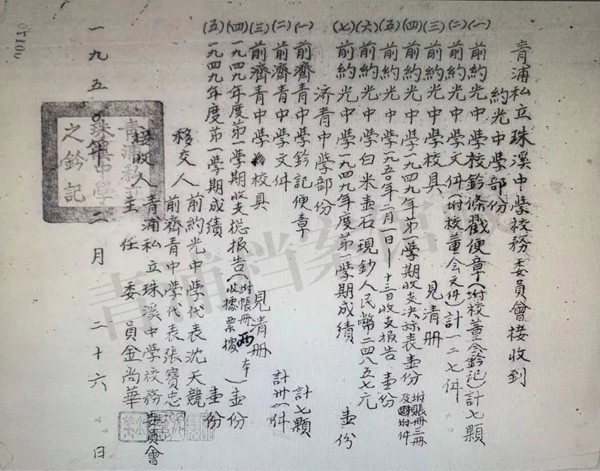 青浦私立珠溪中學校務委員會接收到
約光中學部份
(一)前約光中學校鈐條戳便章(附校董会鈐記)計七顆
(二)前約光中學文件(附校董会文件)計一二七件
(三)前約光中學校具 見清册
(四)前約光中學一九四九年第一學期收支決标表壹份 附賬册三册及附件
(五)前約光中學一九五〇年二月一日—十三日收支报告 壹份
(六)前約光中學白米 石現鈔人民幣二四八五七元
(七)前約光中學一九四九年度第一學期成績 壹份
济青中學部份
(一)前濟青中學鈐記便章 計七顆
(二)前濟青中學文件 計卅一件
(三)前濟青中學校具 見清册
(四)一九四九年度第一學期收支总报告(附帳册兩本 收據票據)壹份
(五)一九四九年度第一學期成績 壹份
移交人 前約光中學代表沈天競
前濟青中學代表張寶忠
接收人 青浦私立珠溪中學校務委員會
主任委員金尚華
一九五〇年二月二十六日
青浦私立珠溪中學之鈐記
青浦档案馆